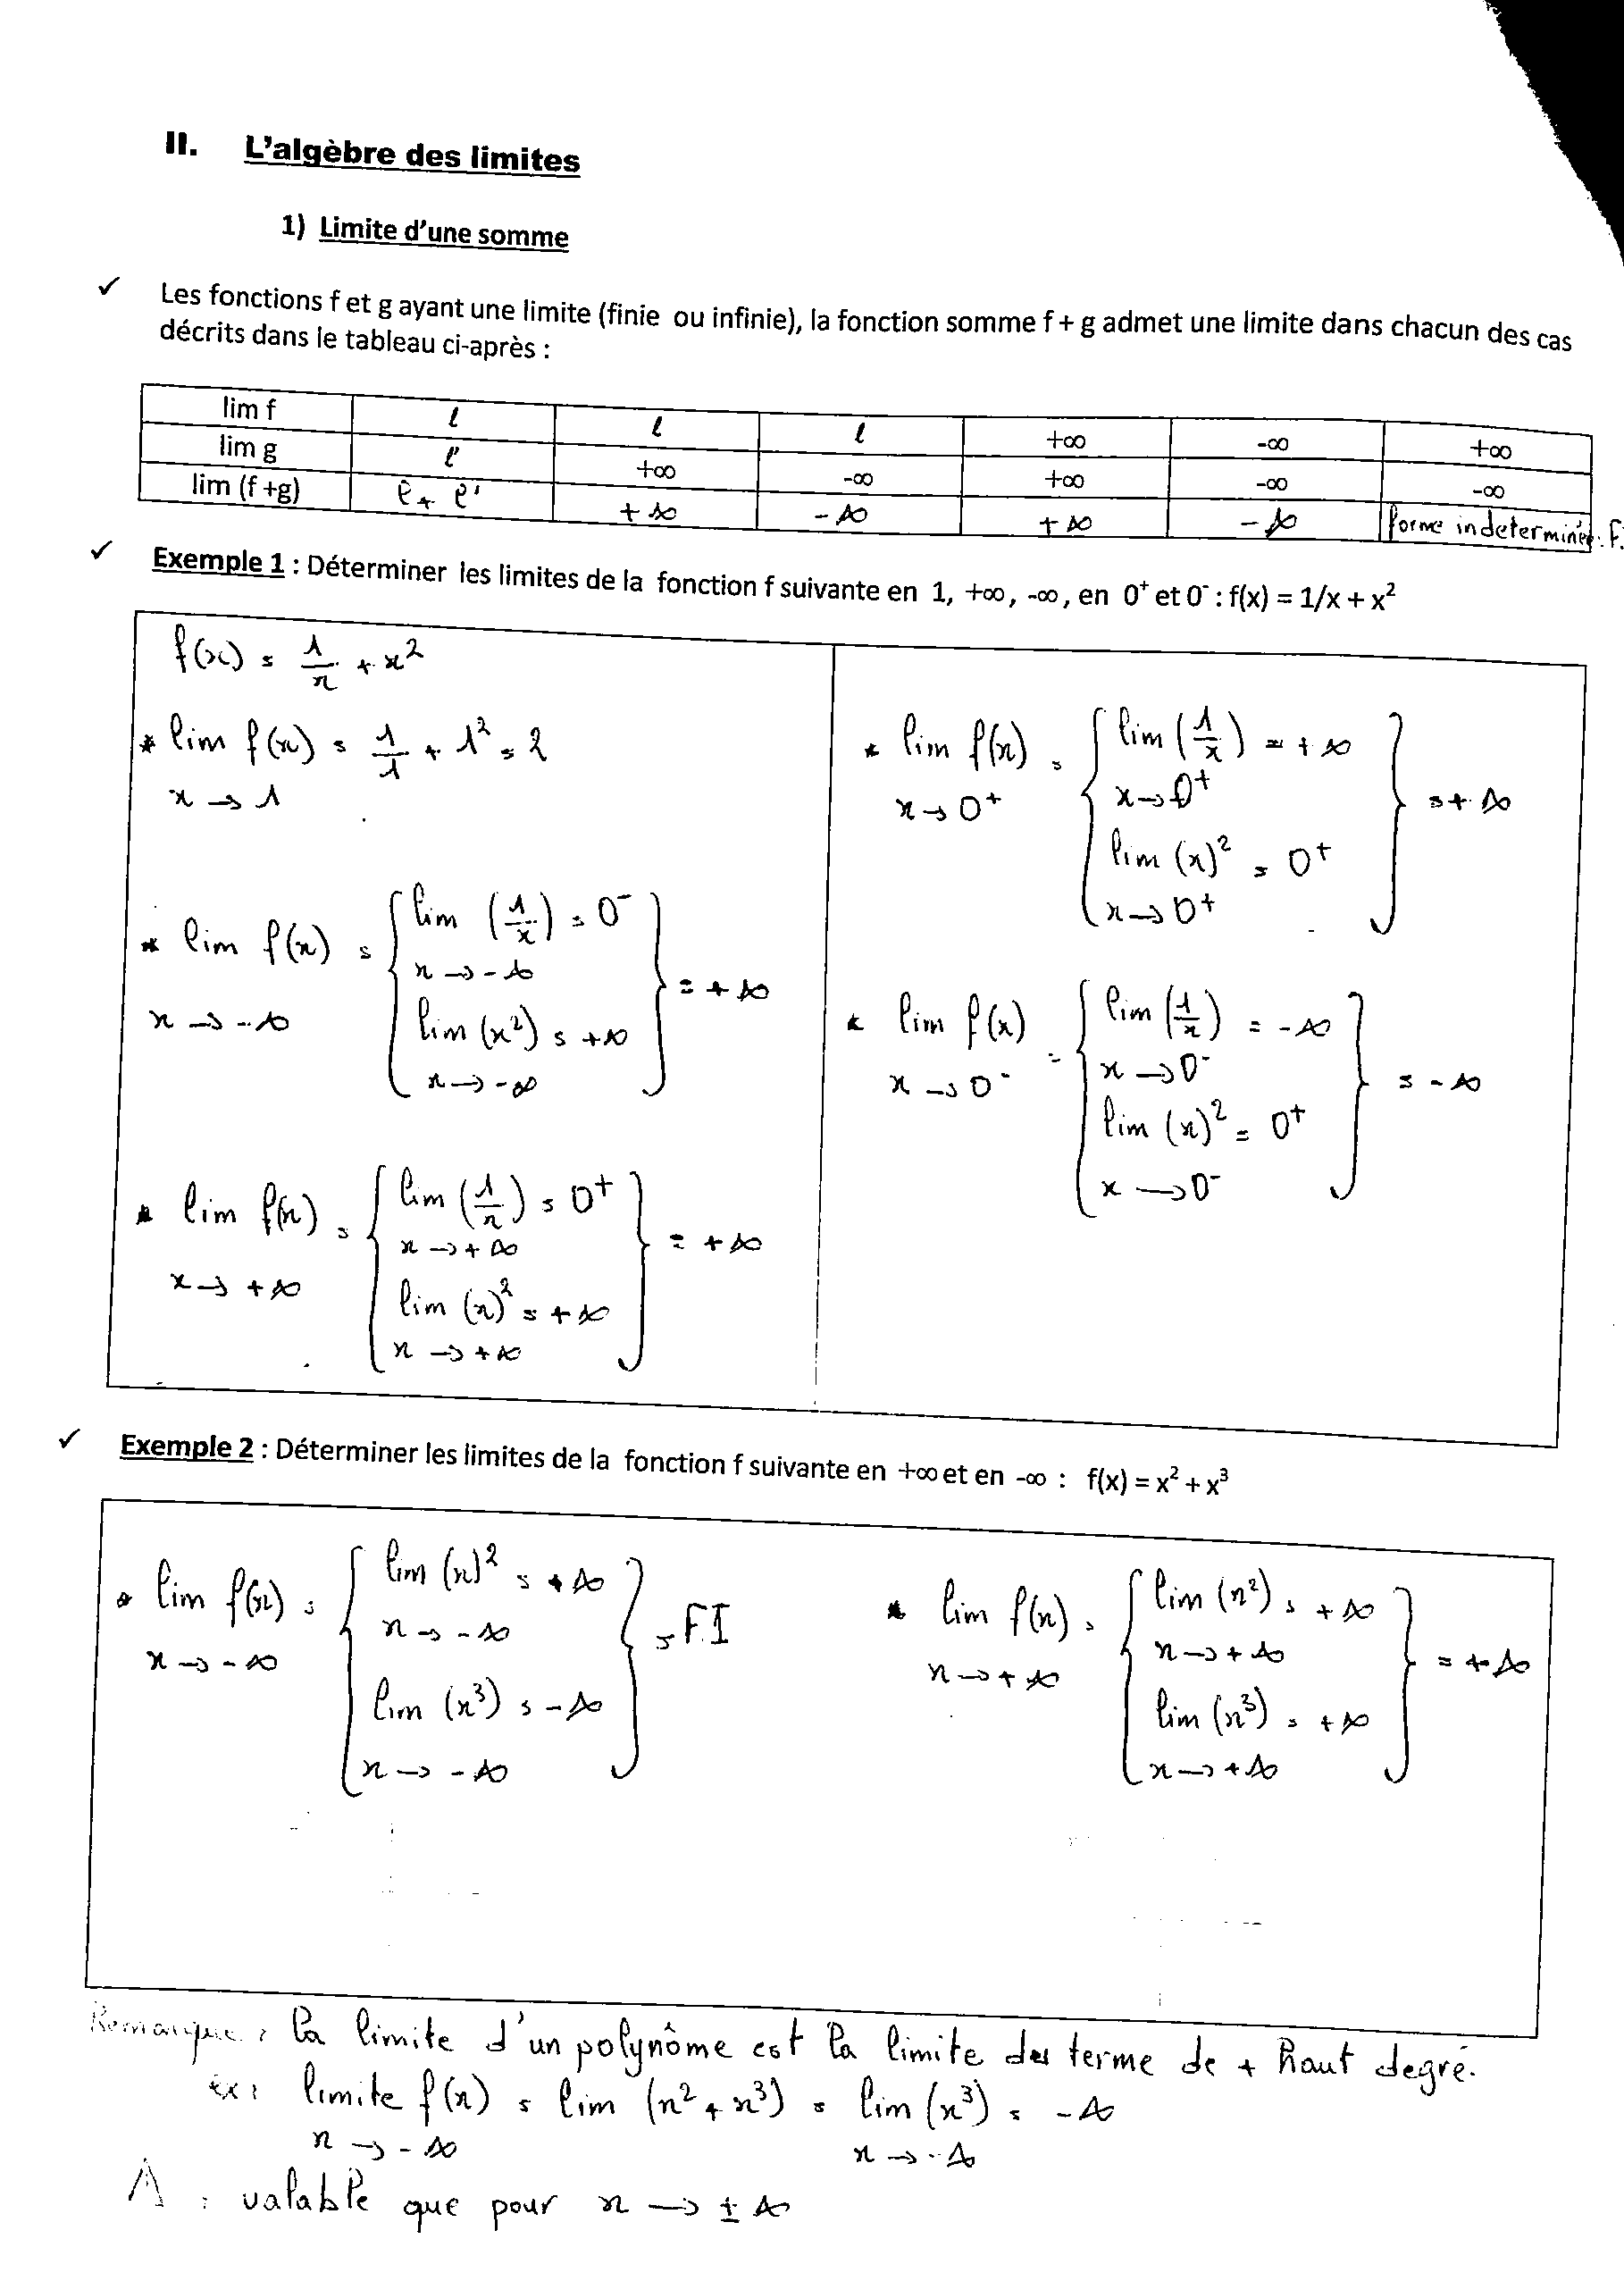 II. L'algèbre des limites
1) Limite d'une somme
✓ Les fonctions f et g ayant une limite (finie ou infinie), la fonction somme f + g admet une limite dans chacun des cas
décrits dans le tableau ci-après :
lim f | ℓ | ℓ | ℓ | +∞ | -∞ | +∞
lim g | ℓ' | +∞ | -∞ | +∞ | -∞ | -∞
lim (f +g) | ℓ + ℓ' | +∞ | -∞ | +∞ | -∞ | forme indeterminée. F.
✓ Exemple 1 : Déterminer les limites de la fonction f suivante en 1, +∞, -∞, en 0⁺ et 0⁻ : f(x) = 1/x + x²
f(x) = 1/x + x²
* lim f(x) = 1/1 + 1² = 2
x → 1
* lim f(x) = { lim (1/x) = 0⁻
x → -∞
lim (x²) = +∞
x → -∞ } = +∞
x → -∞
* lim f(x) = { lim (1/x) = 0⁺
x → +∞
lim (x)² = +∞
x → +∞ } = +∞
x → +∞
* lim f(x) = { lim (1/x) = +∞
x → 0⁺
lim (x)² = 0⁺
x → 0⁺ } = +∞
x → 0⁺
* lim f(x) = { lim (1/x) = -∞
x → 0⁻
lim (x)² = 0⁺
x → 0⁻ } = -∞
x → 0⁻
✓ Exemple 2 : Déterminer les limites de la fonction f suivante en +∞ et en -∞ : f(x) = x² + x³
* lim f(x) = { lim (x)² = +∞
x → -∞
lim (x³) = -∞
x → -∞ } = F.I
x → -∞
* lim f(x) = { lim (x²) = +∞
x → +∞
lim (x³) = +∞
x → +∞ } = +∞
x → +∞
Remarque : la limite d'un polynôme est la limite du terme de + haut degré.
ex : limite f(x) = lim (x² + x³) = lim (x³) = -∞
x → -∞ x → -∞
⚠ : valable que pour x → ± ∞